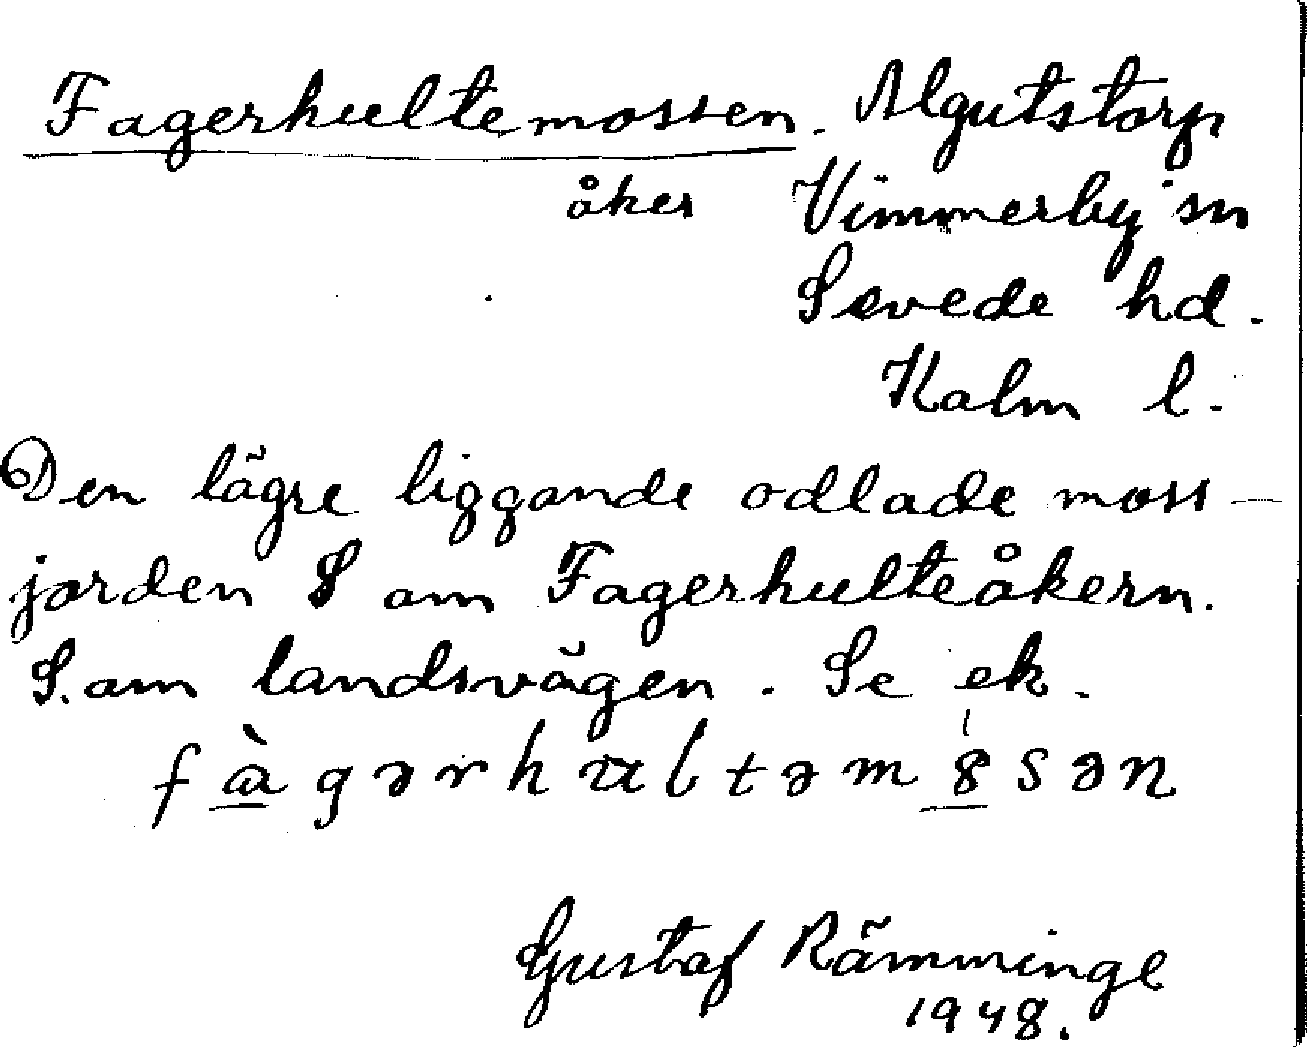 Fagerhultemossen. Algutstorp
åker Vimmerby sn
Sevede hd.
Kalm l.
Den lägre liggande odlade moss-
jorden S om Fagerhulteåkern.
S. om landsvägen. Se ek.
fàgərhultəm8sən
Gustaf Rämminge
1948.